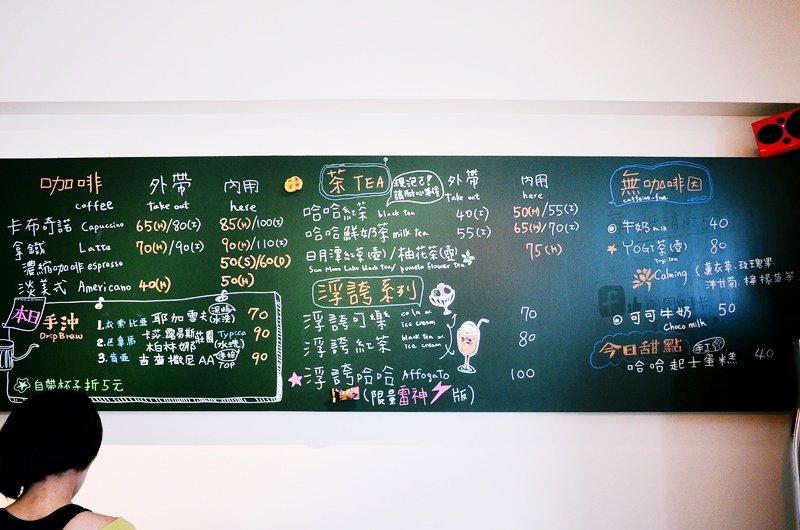 咖啡 外帶 內用
coffee take out here
卡布奇諾 Capuccino 65(H)/80(I) 85(H)/100(I)
拿鐵 Latte 70(H)/90(I) 90(H)/110(I)
濃縮咖啡 espresso 50(S)/60(D)
淡美式 Americano 40(H) 50(H)
本日
手沖 Drip Brew
1. 衣索比亞 耶加雪夫 70
2. 巴拿馬 Typica (水洗) 90
3. 肯亞 吉查撒尼 AA TOP 90
自帶杯子折5元
茶 TEA 外帶 內用
take out here
哈哈紅茶 black tea 40(I) 50(H)/55(I)
哈哈鮮奶茶 milk tea 55(I) 65(H)/70(I)
日月潭紅茶(壺)/柚花茶(壺) 75(H)
Sun Moon Lake black tea/ pomelo flower tea
浮誇系列
浮誇可樂 cola w. ice cream 70
浮誇紅茶 black tea w. ice cream 80
浮誇哈哈 Affogato 100
(限量雷神版)
無咖啡因
caffeine-free
牛奶 milk 40
YOGI茶(壺) 80
Yogi tea
Calming (薰衣草.
洋甘菊.檸檬草等
可可牛奶 50
Choco milk
今日甜點 手工 40
哈哈起士蛋糕